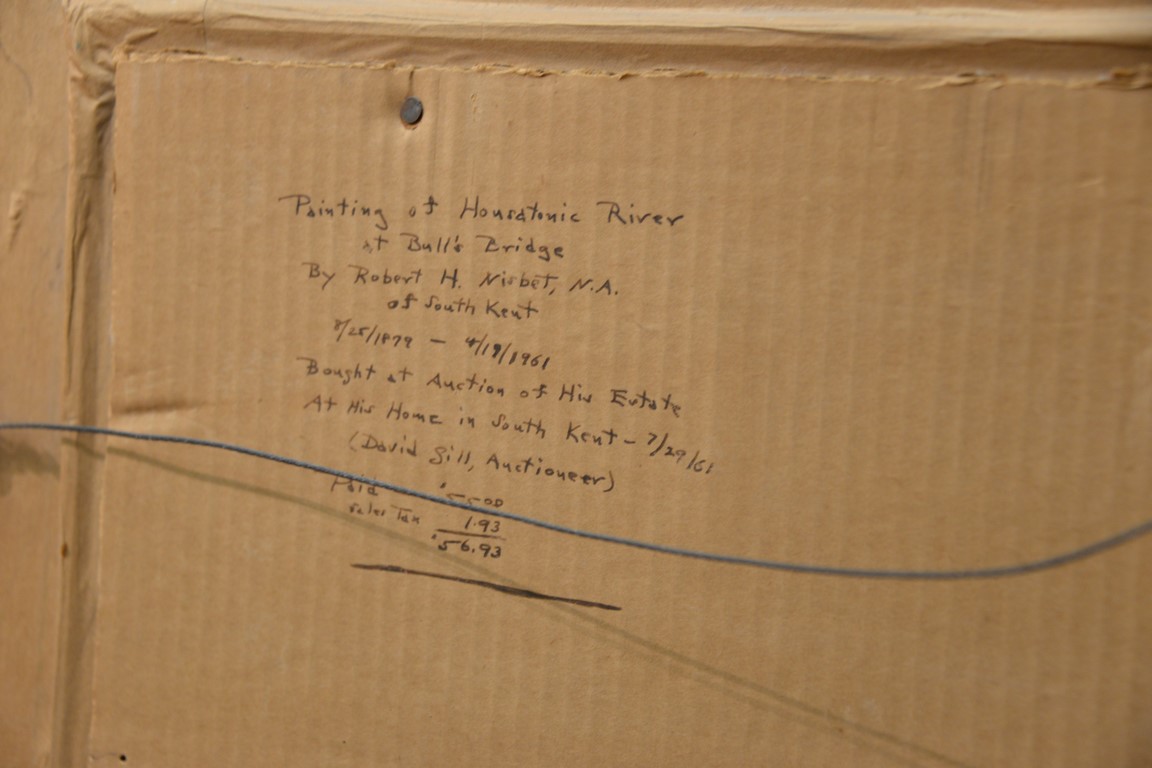 Painting of Housatonic River
at Bull's Bridge
By Robert H. Nisbet, N.A.
of South Kent
8/25/1879 – 4/19/1961
Bought at Auction of His Estate
At His Home in South Kent – 7/29/61
(David Gill, Auctioneer)
Paid $55.00
Sales Tax 1.93
$56.93